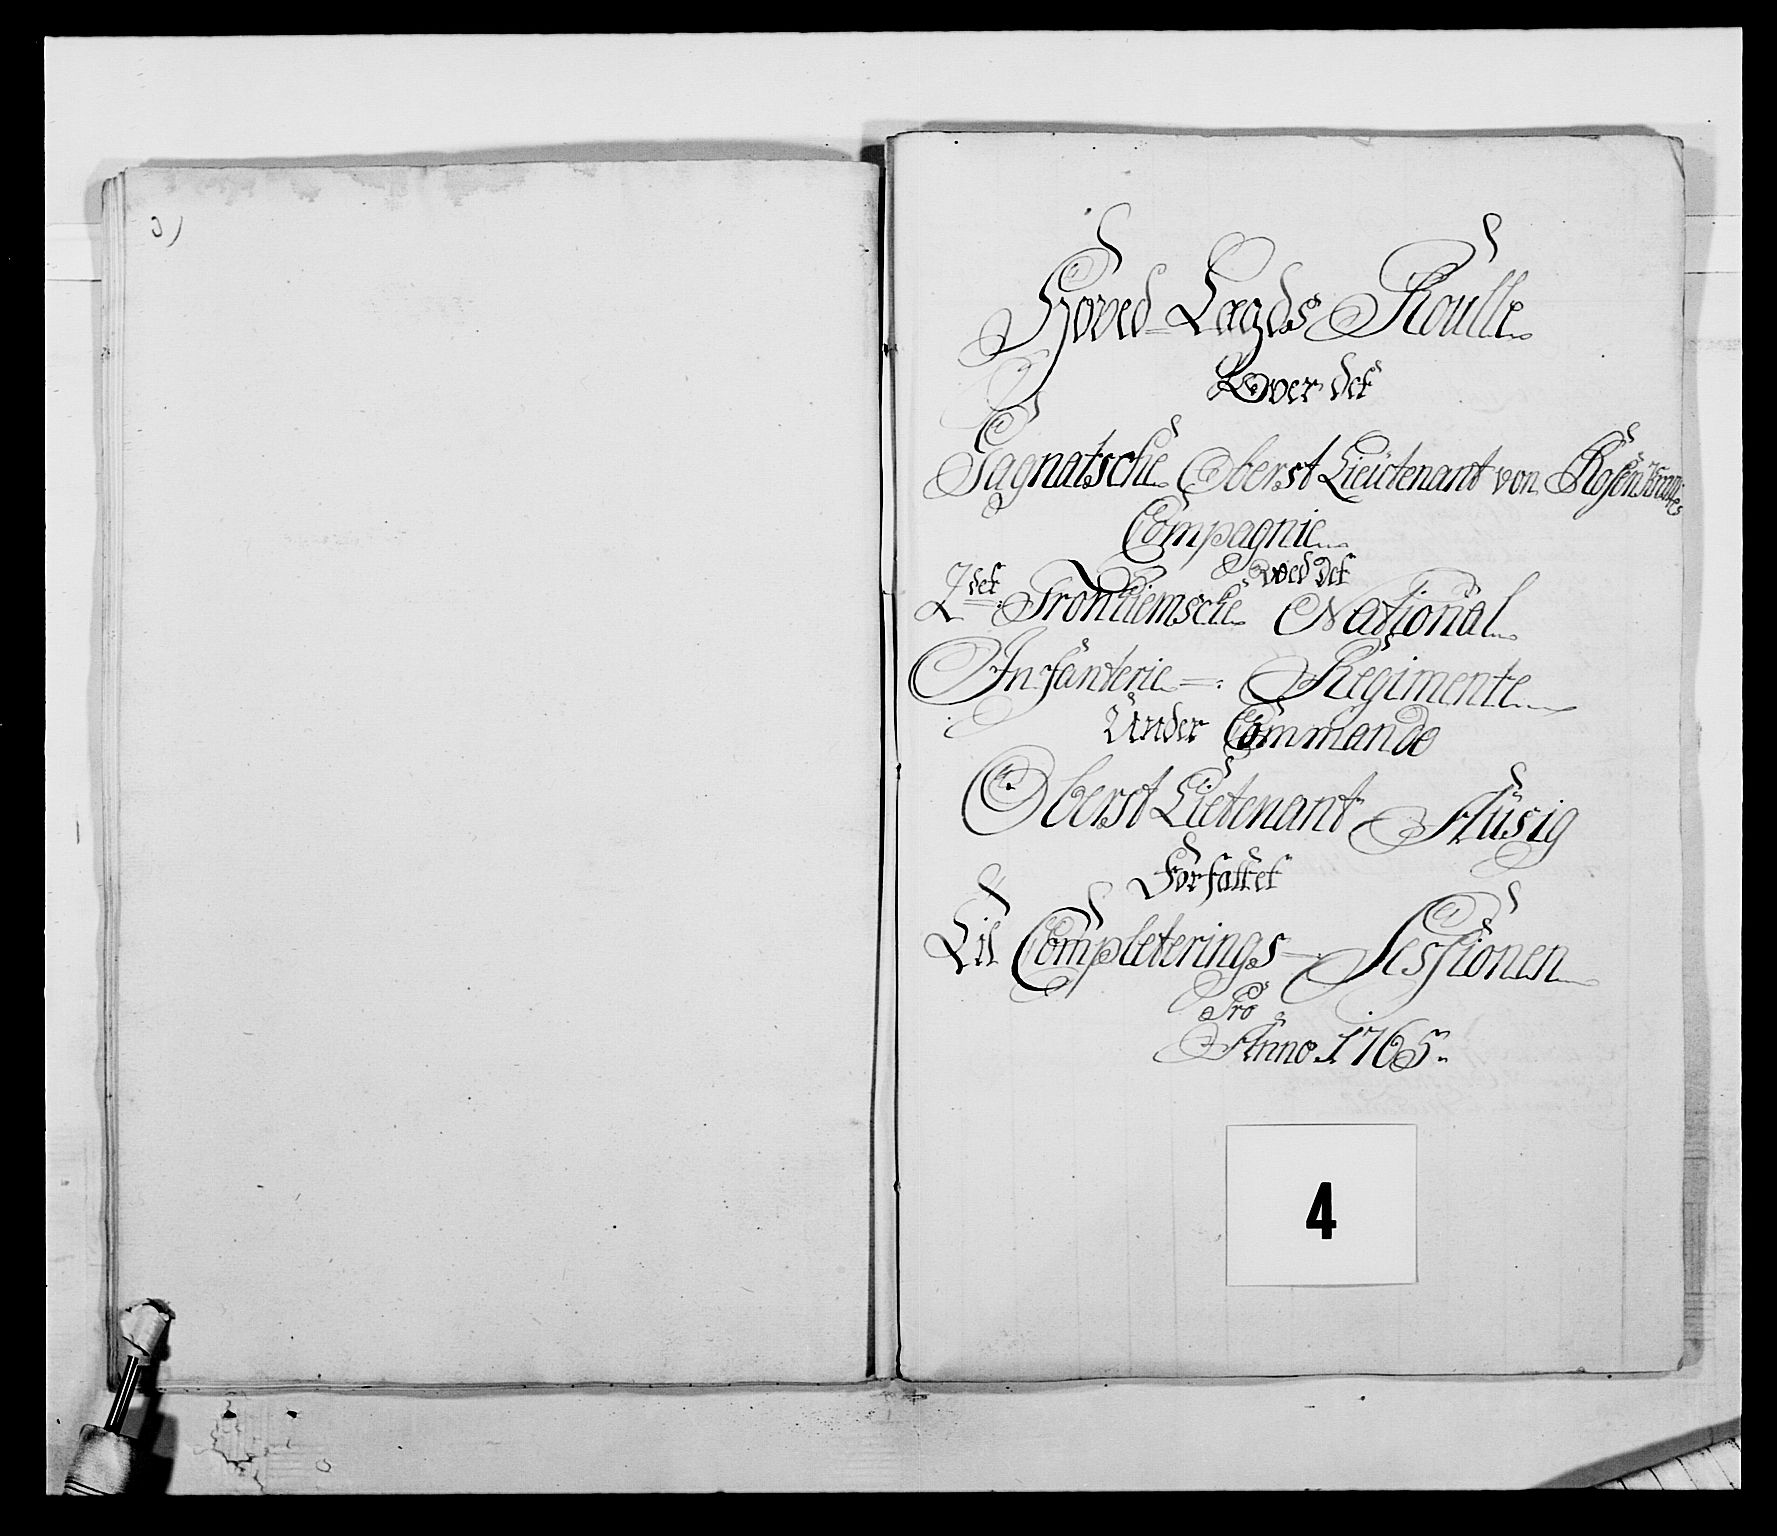 3)
Hoved-Lægds Roulle
Over det
Gagnatsche Oberst Lieutenant von Rosen Krantzes
Compagnie
ved det
2det Tronhiemsche National
Infanterie Regimente
Under Commando
Oberst Lietenant Husig
Forfattet
Til Completerings-Sessionen
Pro
Anno 1765
4